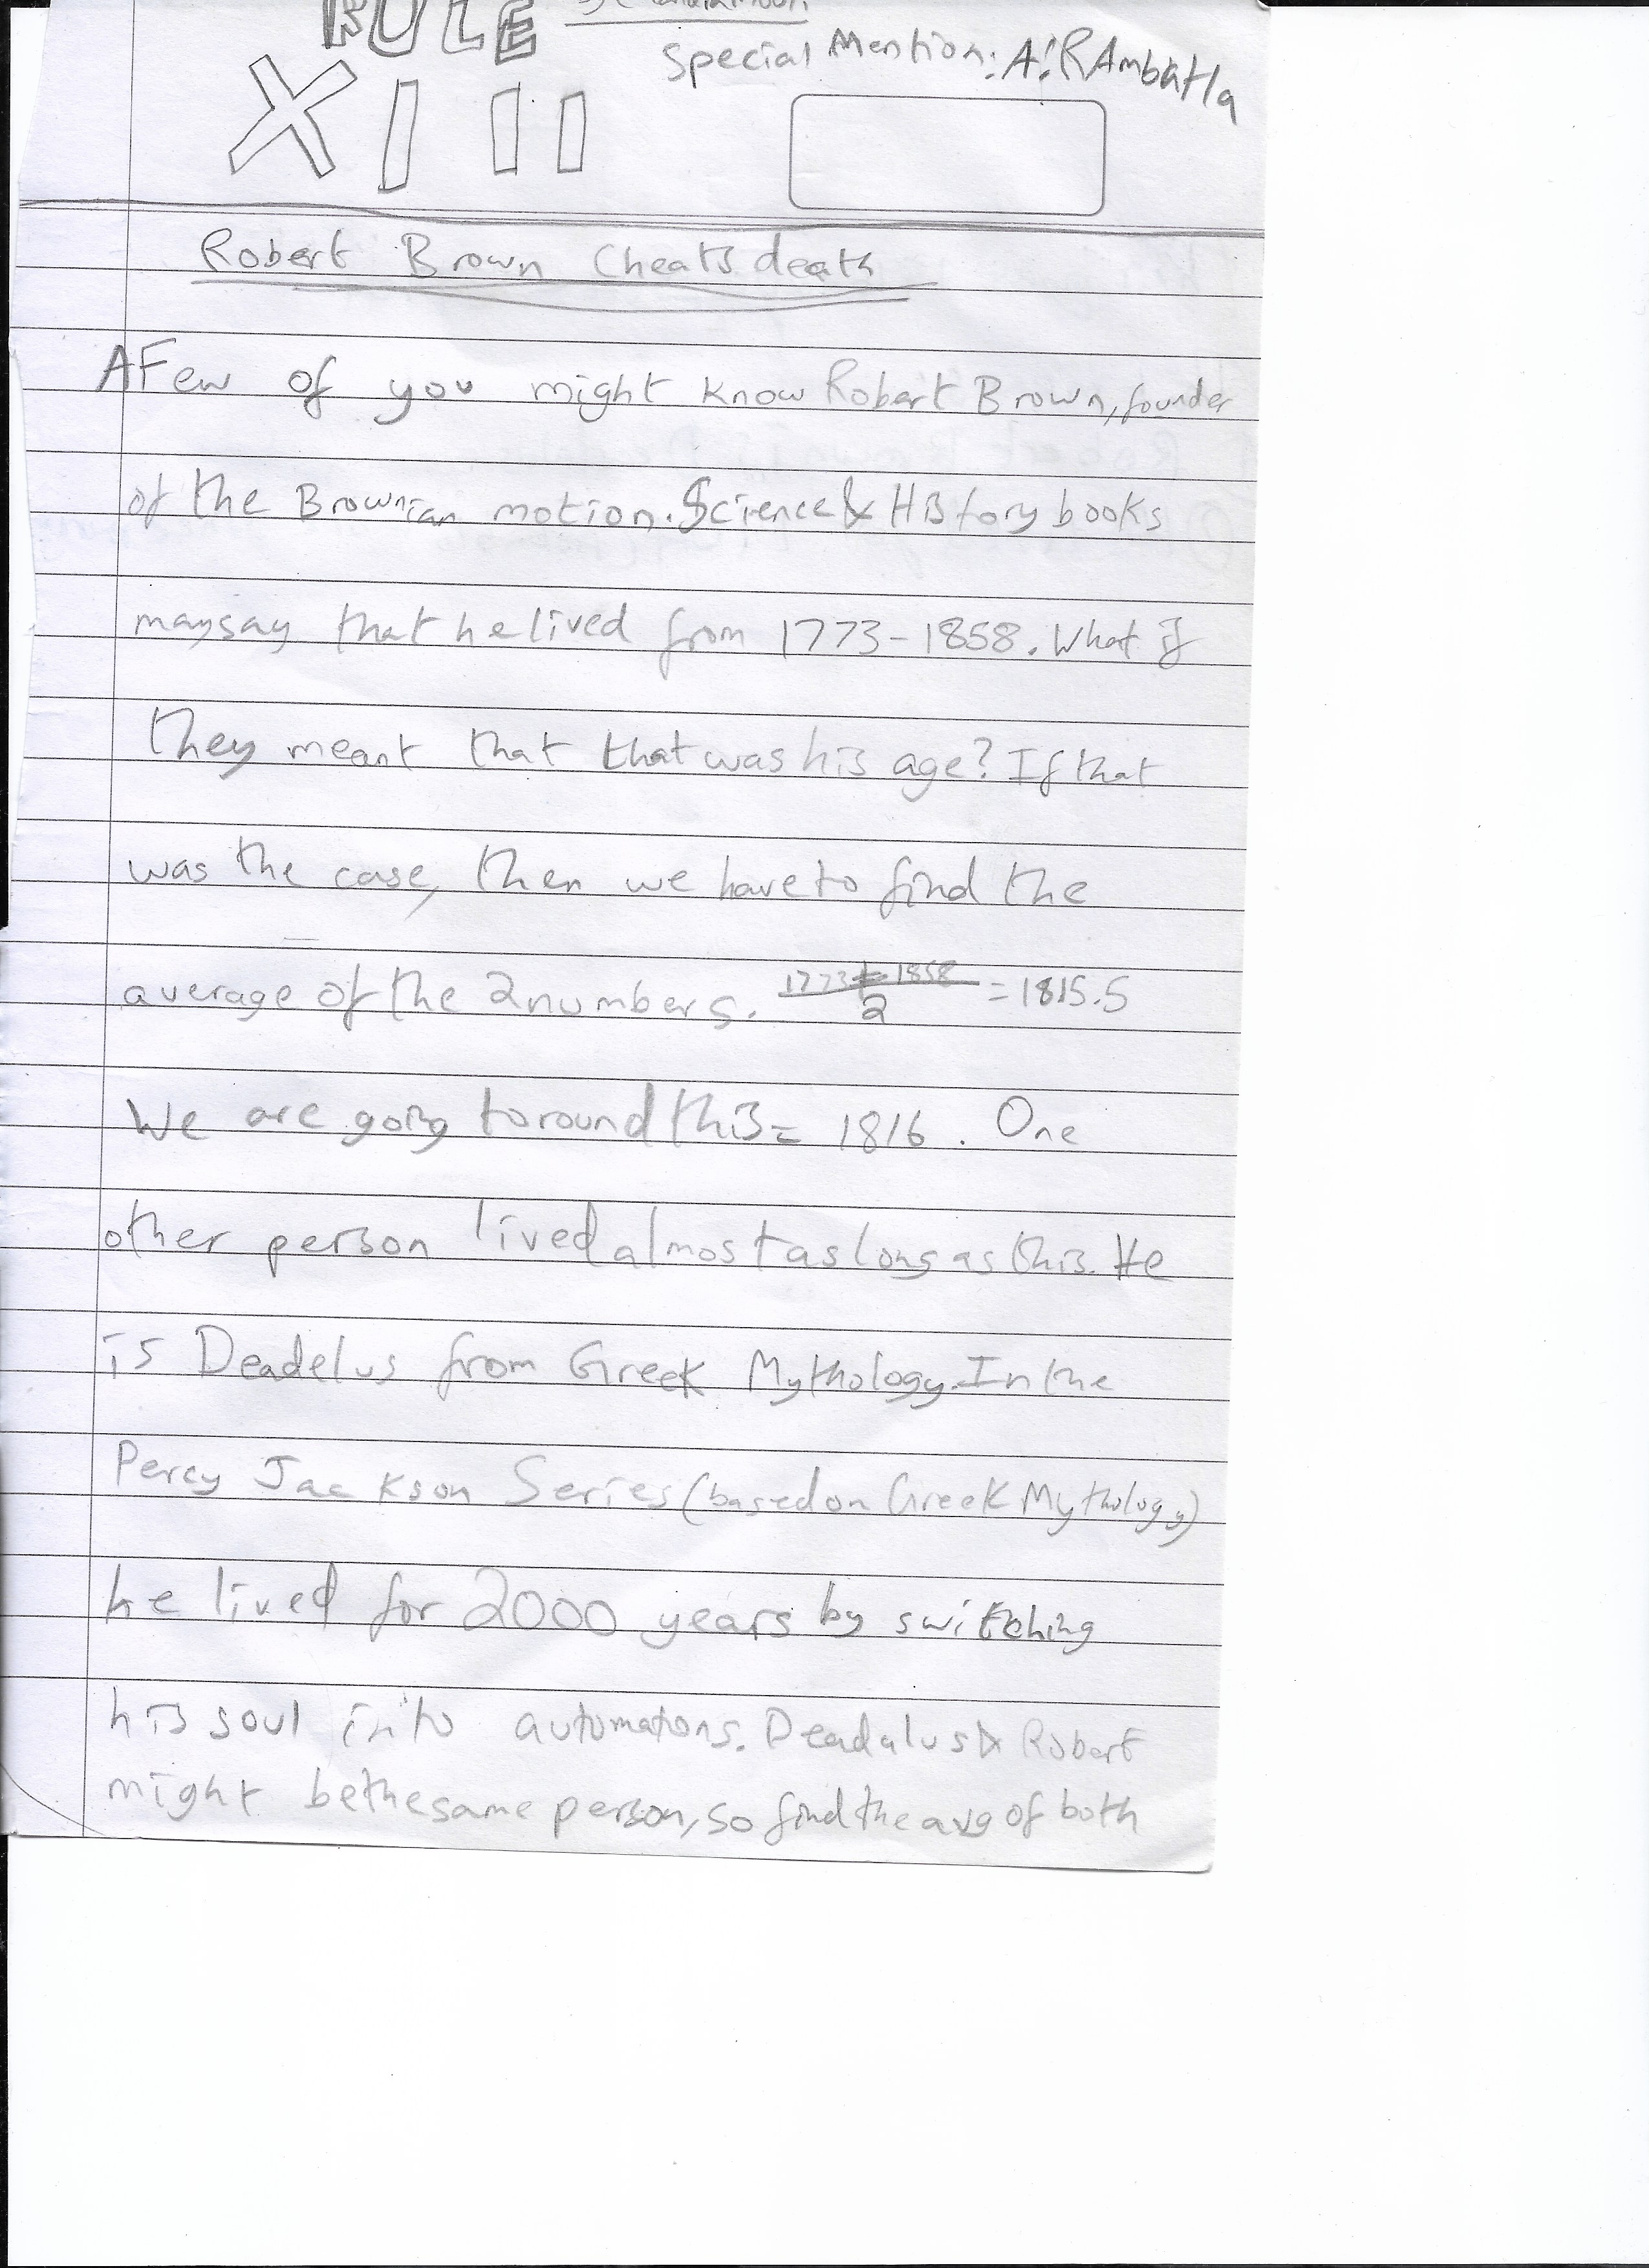 RULE
Special Mention: A.R Ambatla
XIII
Robert Brown Cheats death
A Few of you might know Robert Brown, founder
of the Brownian motion. Science & History books
may say that he lived from 1773-1858. What if
they meant that that was his age? If that
was the case, then we have to find the
average of the 2 numbers. 1773+1858/2 = 1815.5
We are going to round this = 1816. One
other person lived almost as long as this. He
is Deadelus from Greek Mythology. In the
Percy Jackson Series (based on Greek Mythology)
he lived for 2000 years by switching
his soul into automatons. Deadalus & Robert
might be the same person, so find the avg of both